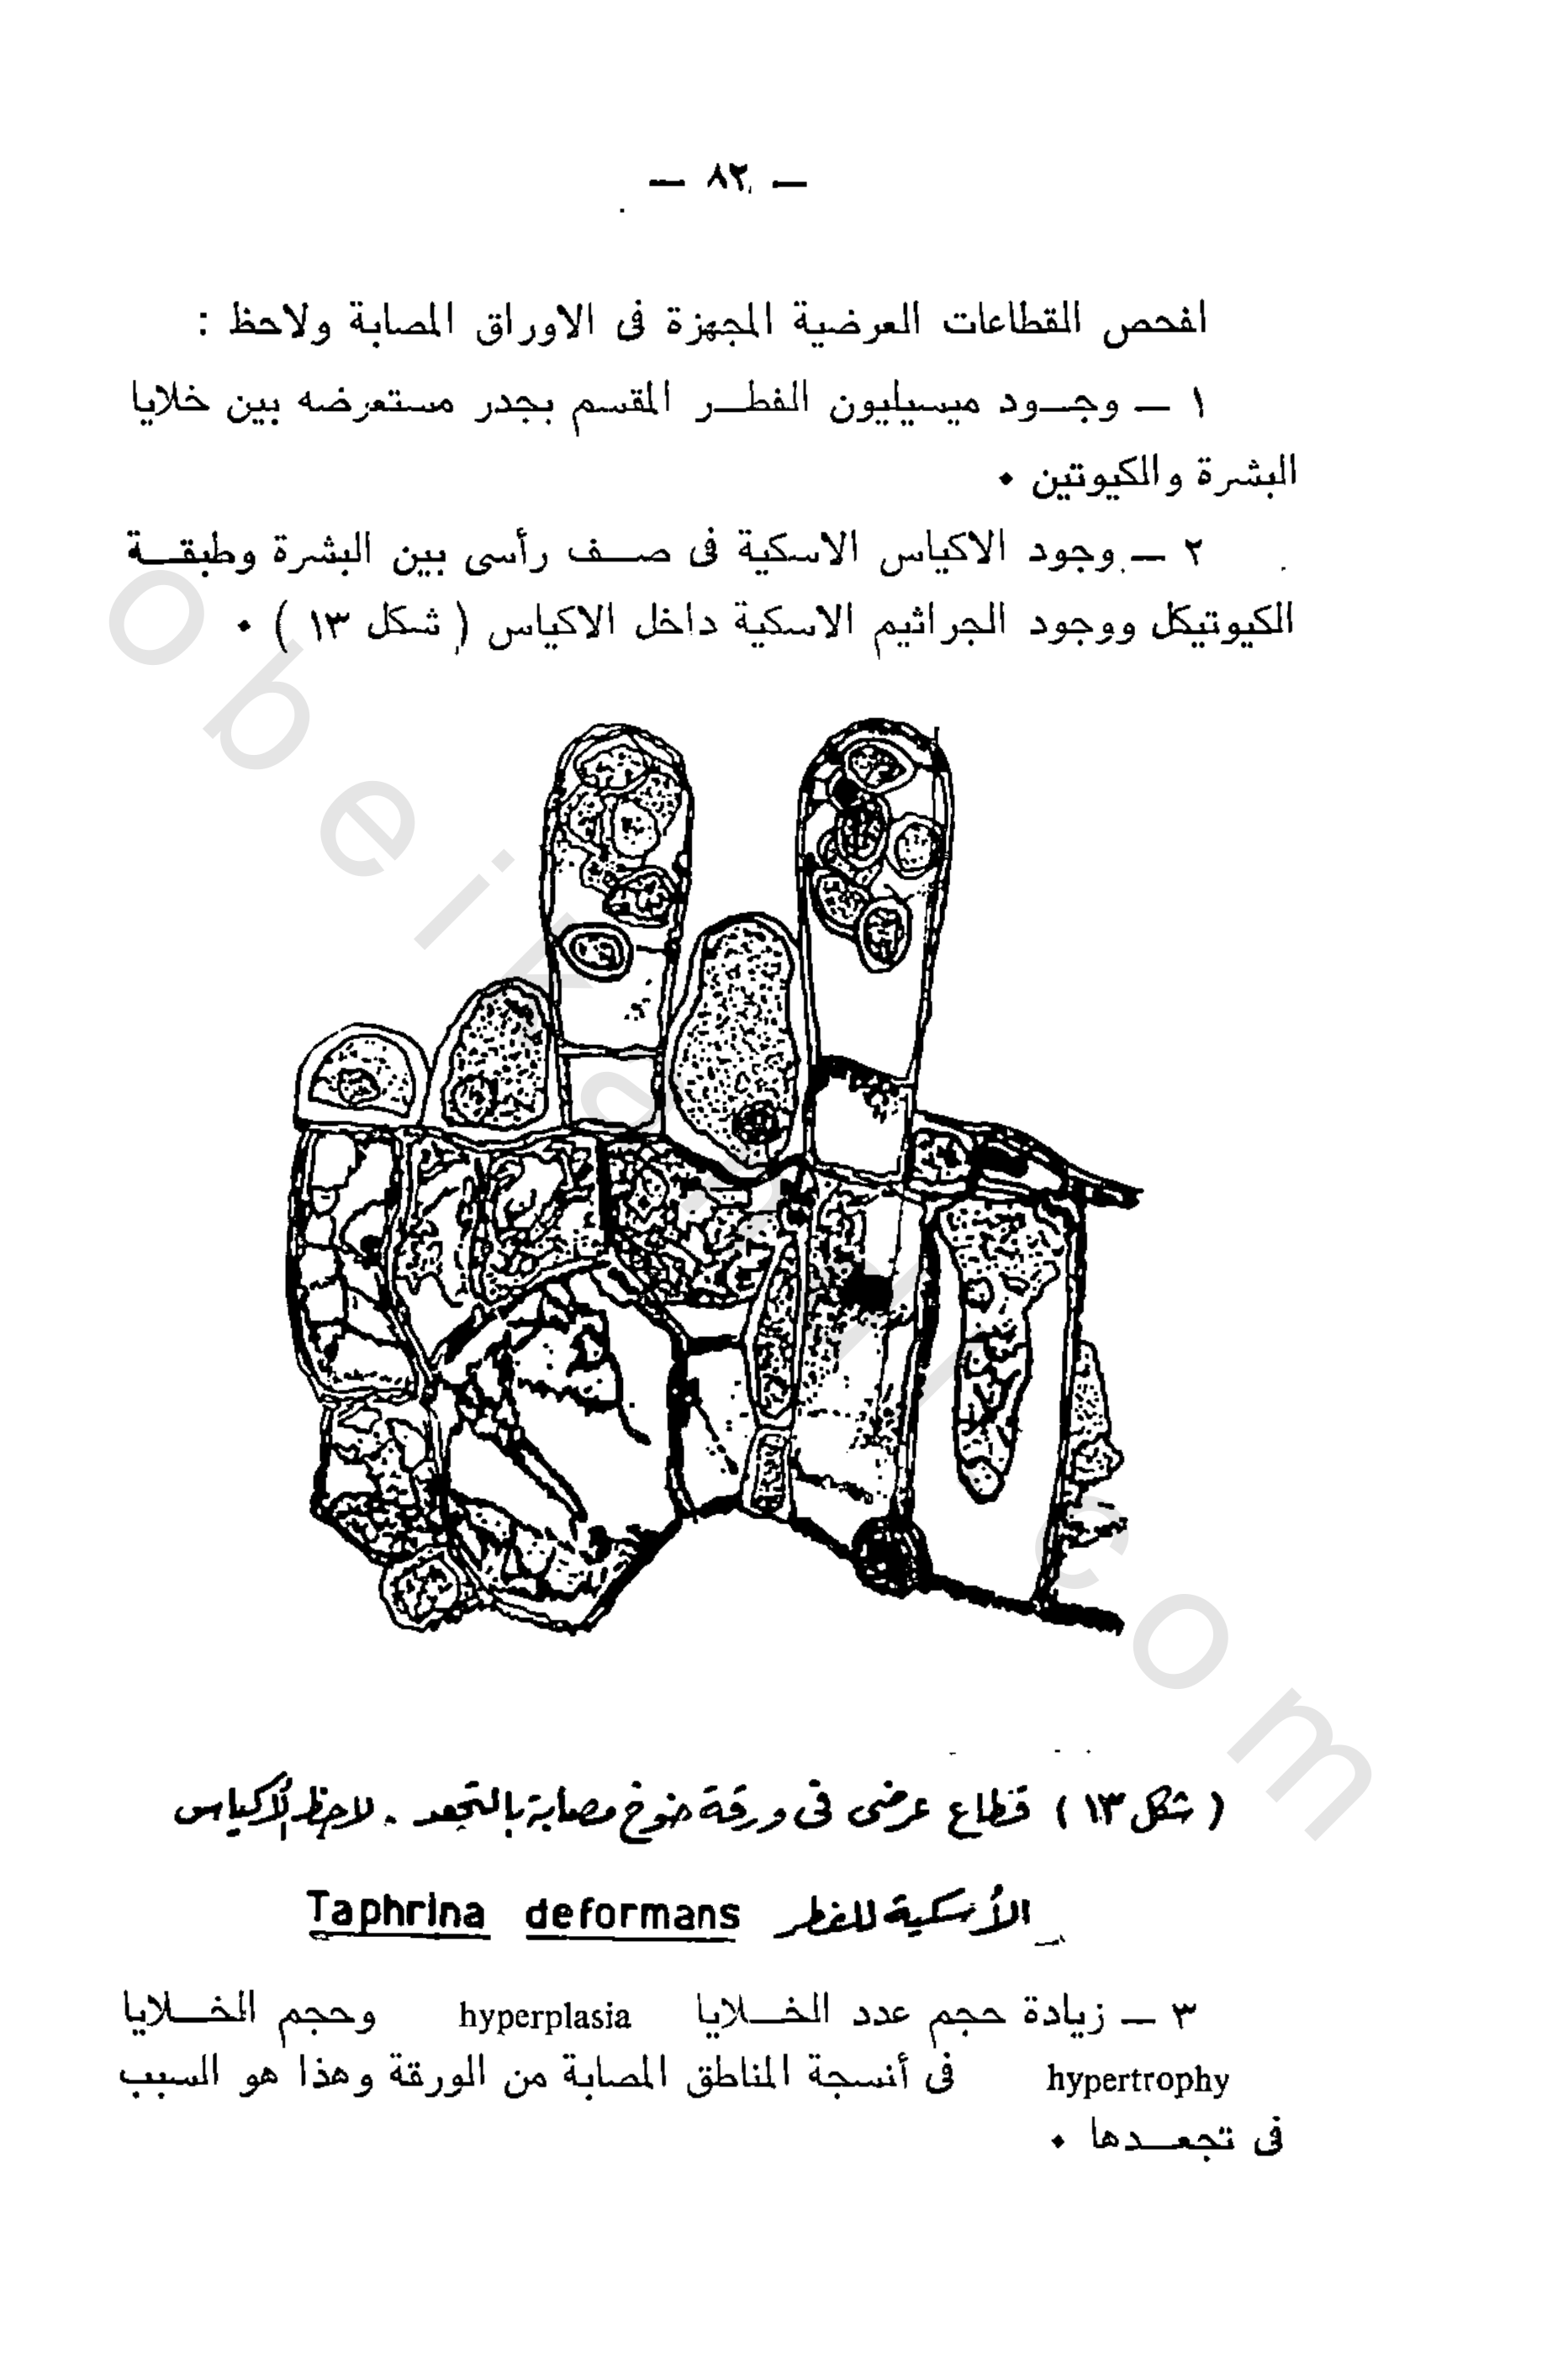 — ٨٢ —
افحص القطاعات العرضية المجهزة فى الاوراق المصابة ولاحظ :
١ — وجــود ميسيليون الفطــر المقسم بجدر مستعرضه بين خلايا
البشرة والكيوتين •
٢ — وجود الاكياس الاسكية فى صــف رأسى بين البشرة وطبقــة
الكيوتيكل ووجود الجراثيم الاسكية داخل الاكياس ( شكل ١٣ ) •
( شكل ١٣ ) قطاع عرضى فى ورقة خوخ مصابة بالتجعد . لاحظ الأكياس
الأسكية للفطر Taphrina deformans
٣ — زيادة حجم عدد الخــلايا hyperplasia وحجم الخــلايا
hypertrophy فى أنسجة المناطق المصابة من الورقة وهذا هو السبب
فى تجعــدها •
obeikandl.com